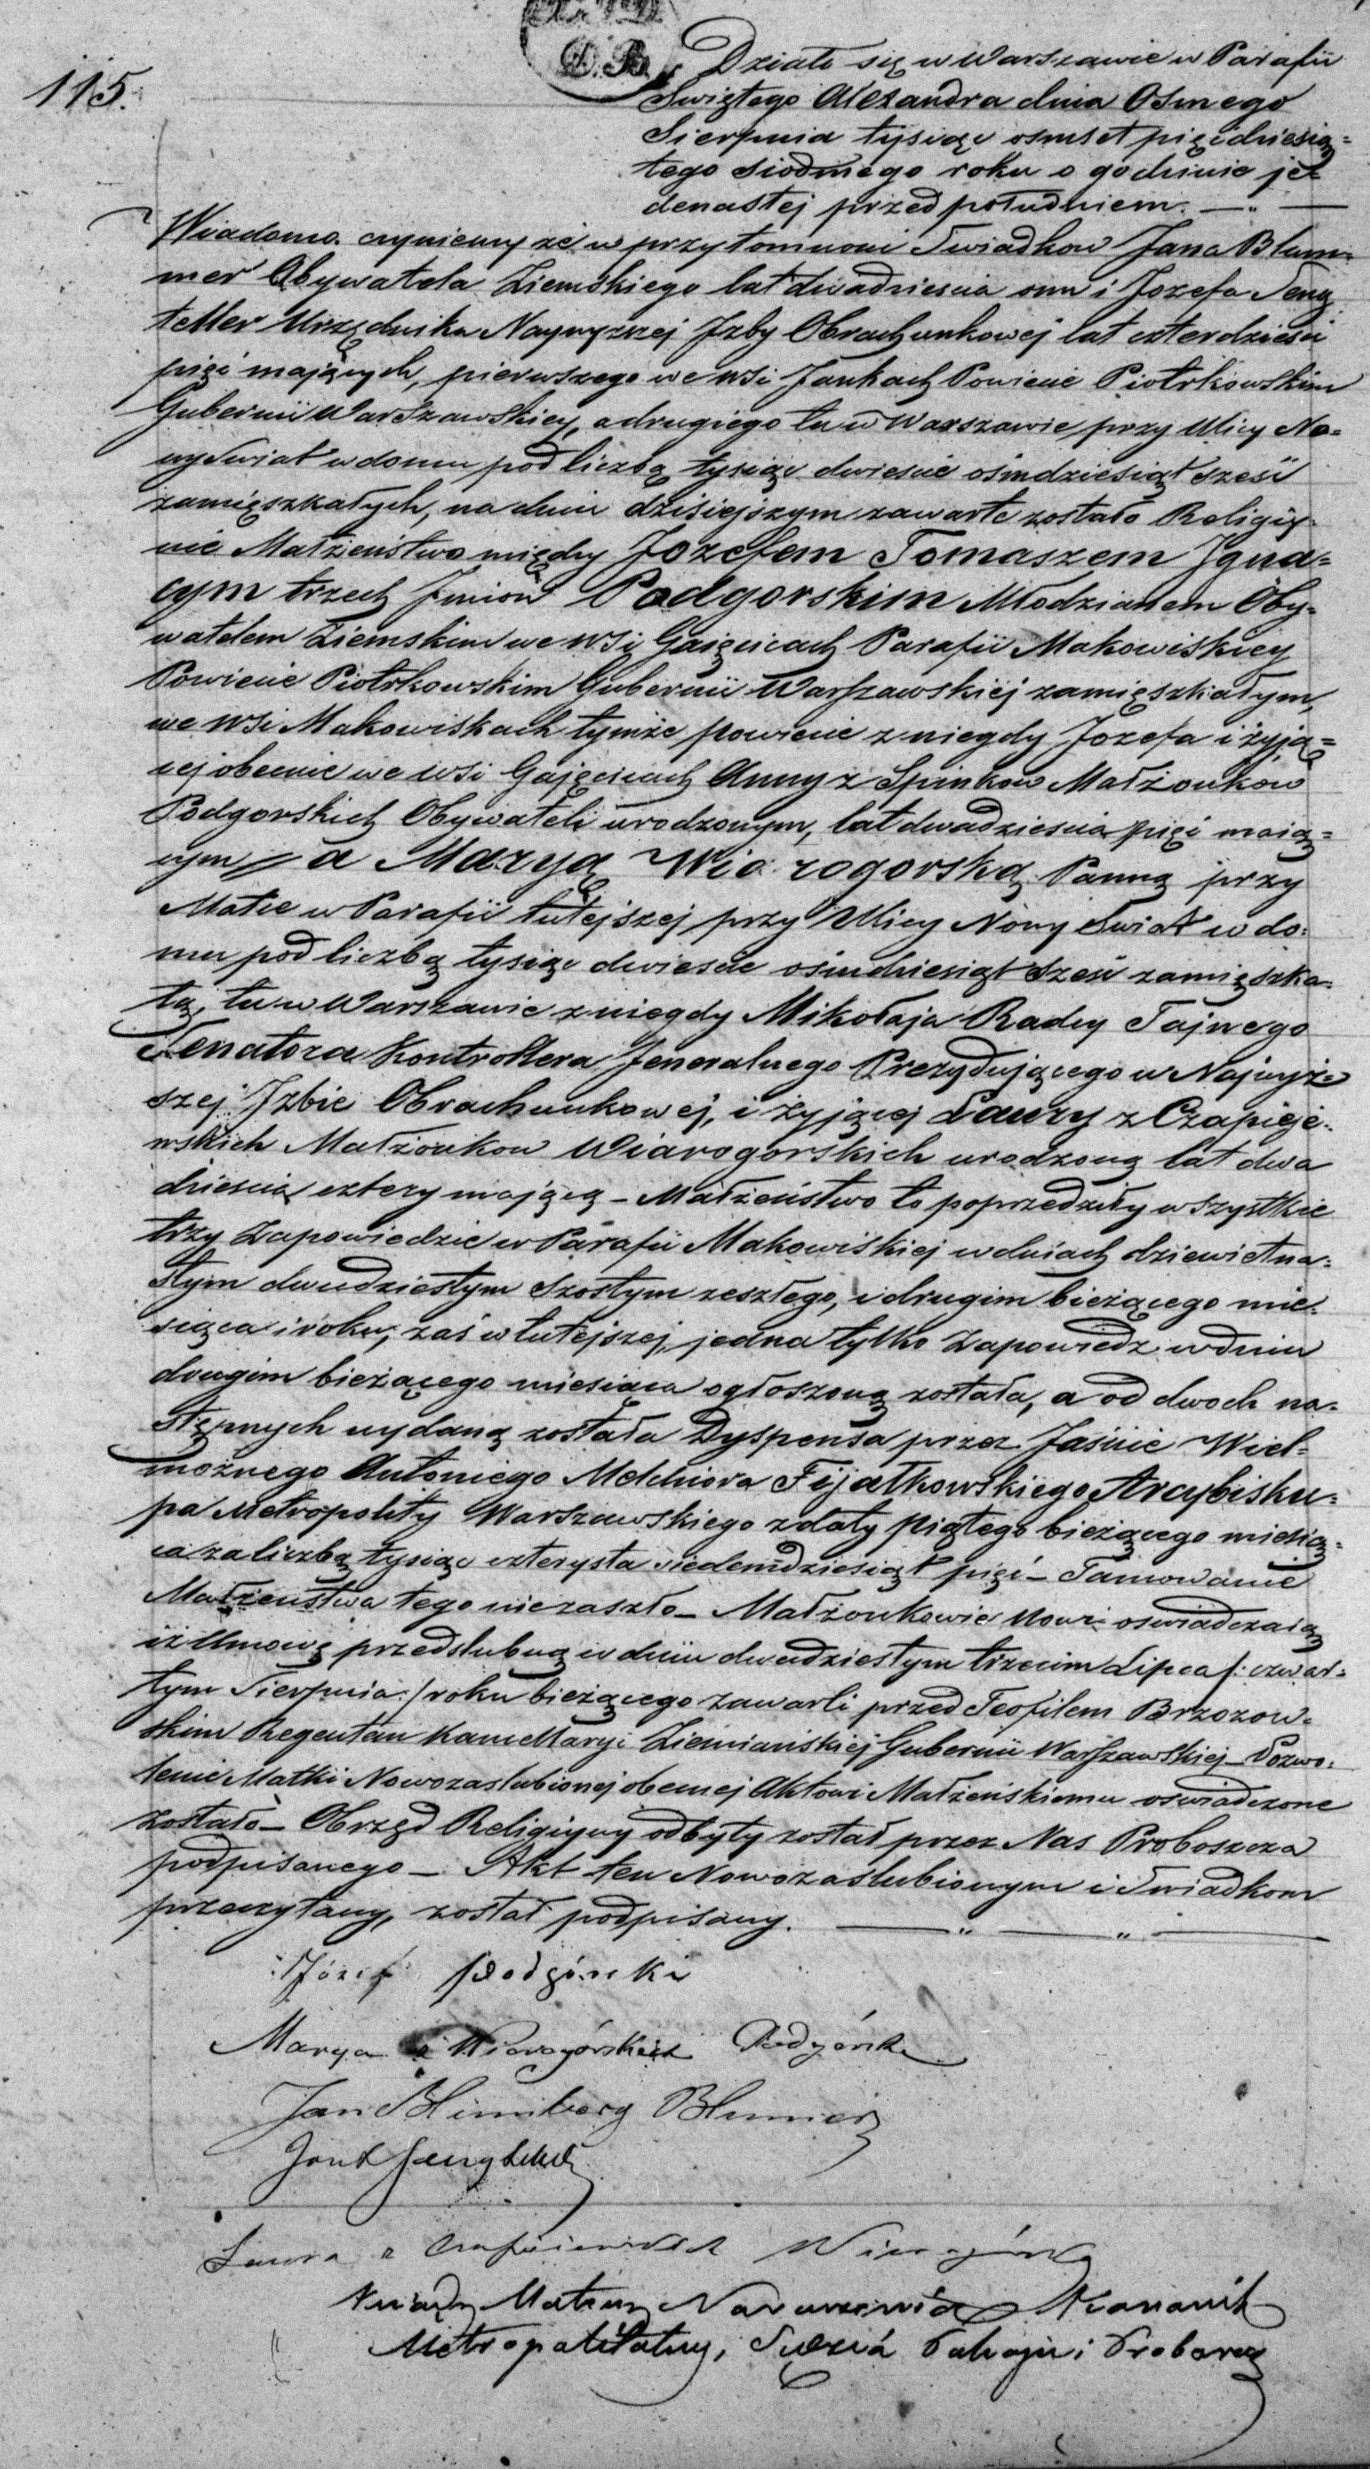 D. B.
115.
Działo się w Warszawie w Parafii
Swiętego Alexandra dnia Osmego
Sierpnia tysiąc ośmset pięćdziesią=
tego siodmego roku o godzinie je=
denastej przed południem.
Wiadomo czyniemy że w przytomności Swiadkow Jana Blum=
mer Obywatela Ziemskiego lat dwadzieścia osm i Jozefa Seng
teller Urzędnika Naywyższej Jzby Obrachunkowej lat czterdzieści
pięć mających, pierwszego we wsi Jankach Powiecie Piotrkowskim
Gubernii Warszawskiey, a drugiego tu w Warszawie przy Ulicy No=
wy Swiat w domu pod liczbą tysiąc dwieście ośmdziesiąt sześć
zamięszkałych, na dniu dzisiejszym zawarte zostało Religiy=
nie Małżeństwo między Jozefem Tomaszem Jgna=
cym trzech Jmion Podgorskim Młodzianem Oby=
watelem Ziemskim we wsi Gaięcicach Parafii Makowiskiey
Powiecie Piotrkowskim Gubernii Warszawskiej zamięszkałym,
we wsi Makowiskach tymże powiecie z niegdy Jozefa i żyją=
cej obecnie we wsi Gajęcicach Anny z Spinkow Małżonkow
Podgorskich Obywateli urodzonym, lat dwadzieścia pięć maią=
cym // a Maryą Wiarogorską Panną przy
Matce w Parafii tutejszej przy Ulicy Nowy Swiat w do=
mu pod liczbą tysiąc dwieście ośmdziesiąt sześć zamięszka=
łą, tu w Warszawie z niegdy Mikołaja Radcy Tajnego
Senatora Kontrollera Jeneralnego Prezydującego w Najwyż=
szej Jzbie Obrachunkowej, i żyjącej Laury z Czapieje=
wskich Małżonkow Wiarogorskich urodzoną lat dwa
dzieścia cztery mającą – Małżeństwo to poprzedziły wszystkie
trzy Zapowiedzie w Parafii Makowiskiej w dniach dziewietna=
stym dwudziestym szostym zeszłego, i drugim bieżącego mie=
siąca i roku, zaś w tutejszej, jedna tylko Zapowiedz w dniu
drugim bieżącego miesiąca ogłoszoną została, a od dwoch na=
stępnych wydaną została Dyspensa przez Jaśnie Wiel=
możnego Antoniego Melchiora Fijałkowskiego Arcybisku=
pa Metropolity Warszawskiego z daty piątego bieżącego miesią=
ca za liczbą tysiąc czterysta siedemdziesiąt pięć – Tamowanie
Małżeństwa tego niezaszło – Małżonkowie Nowi oświadczaią
iż Umowę przedślubną w dniu dwudziestym trzecim Lipca /: czwar=
tym Sierpnia :/ roku bieżącego zawarli przed Teofilem Brzozow=
skim Regentem Kancellaryi Ziemiańskiej Gubernii Warszawskiej – Pozwo=
lenie Matki Nowozaslubionej obecnej Aktowi Małżeńskiemu oświadczone
zostało – Obrzęd Religiyny odbyty został przez Nas Proboszcza
podpisanego – Akt ten Nowozaslubionym i Swiadkom
przeczytany, został podpisany.
Józef Podgórski
Marya z Wiarogórskich Podgórska
Jan Blumer
Laura z Czapiejewskich Wiarogórska
Xiądz Mateusz Kanonik
Metropolitalny, Sędzia i Proboszcz